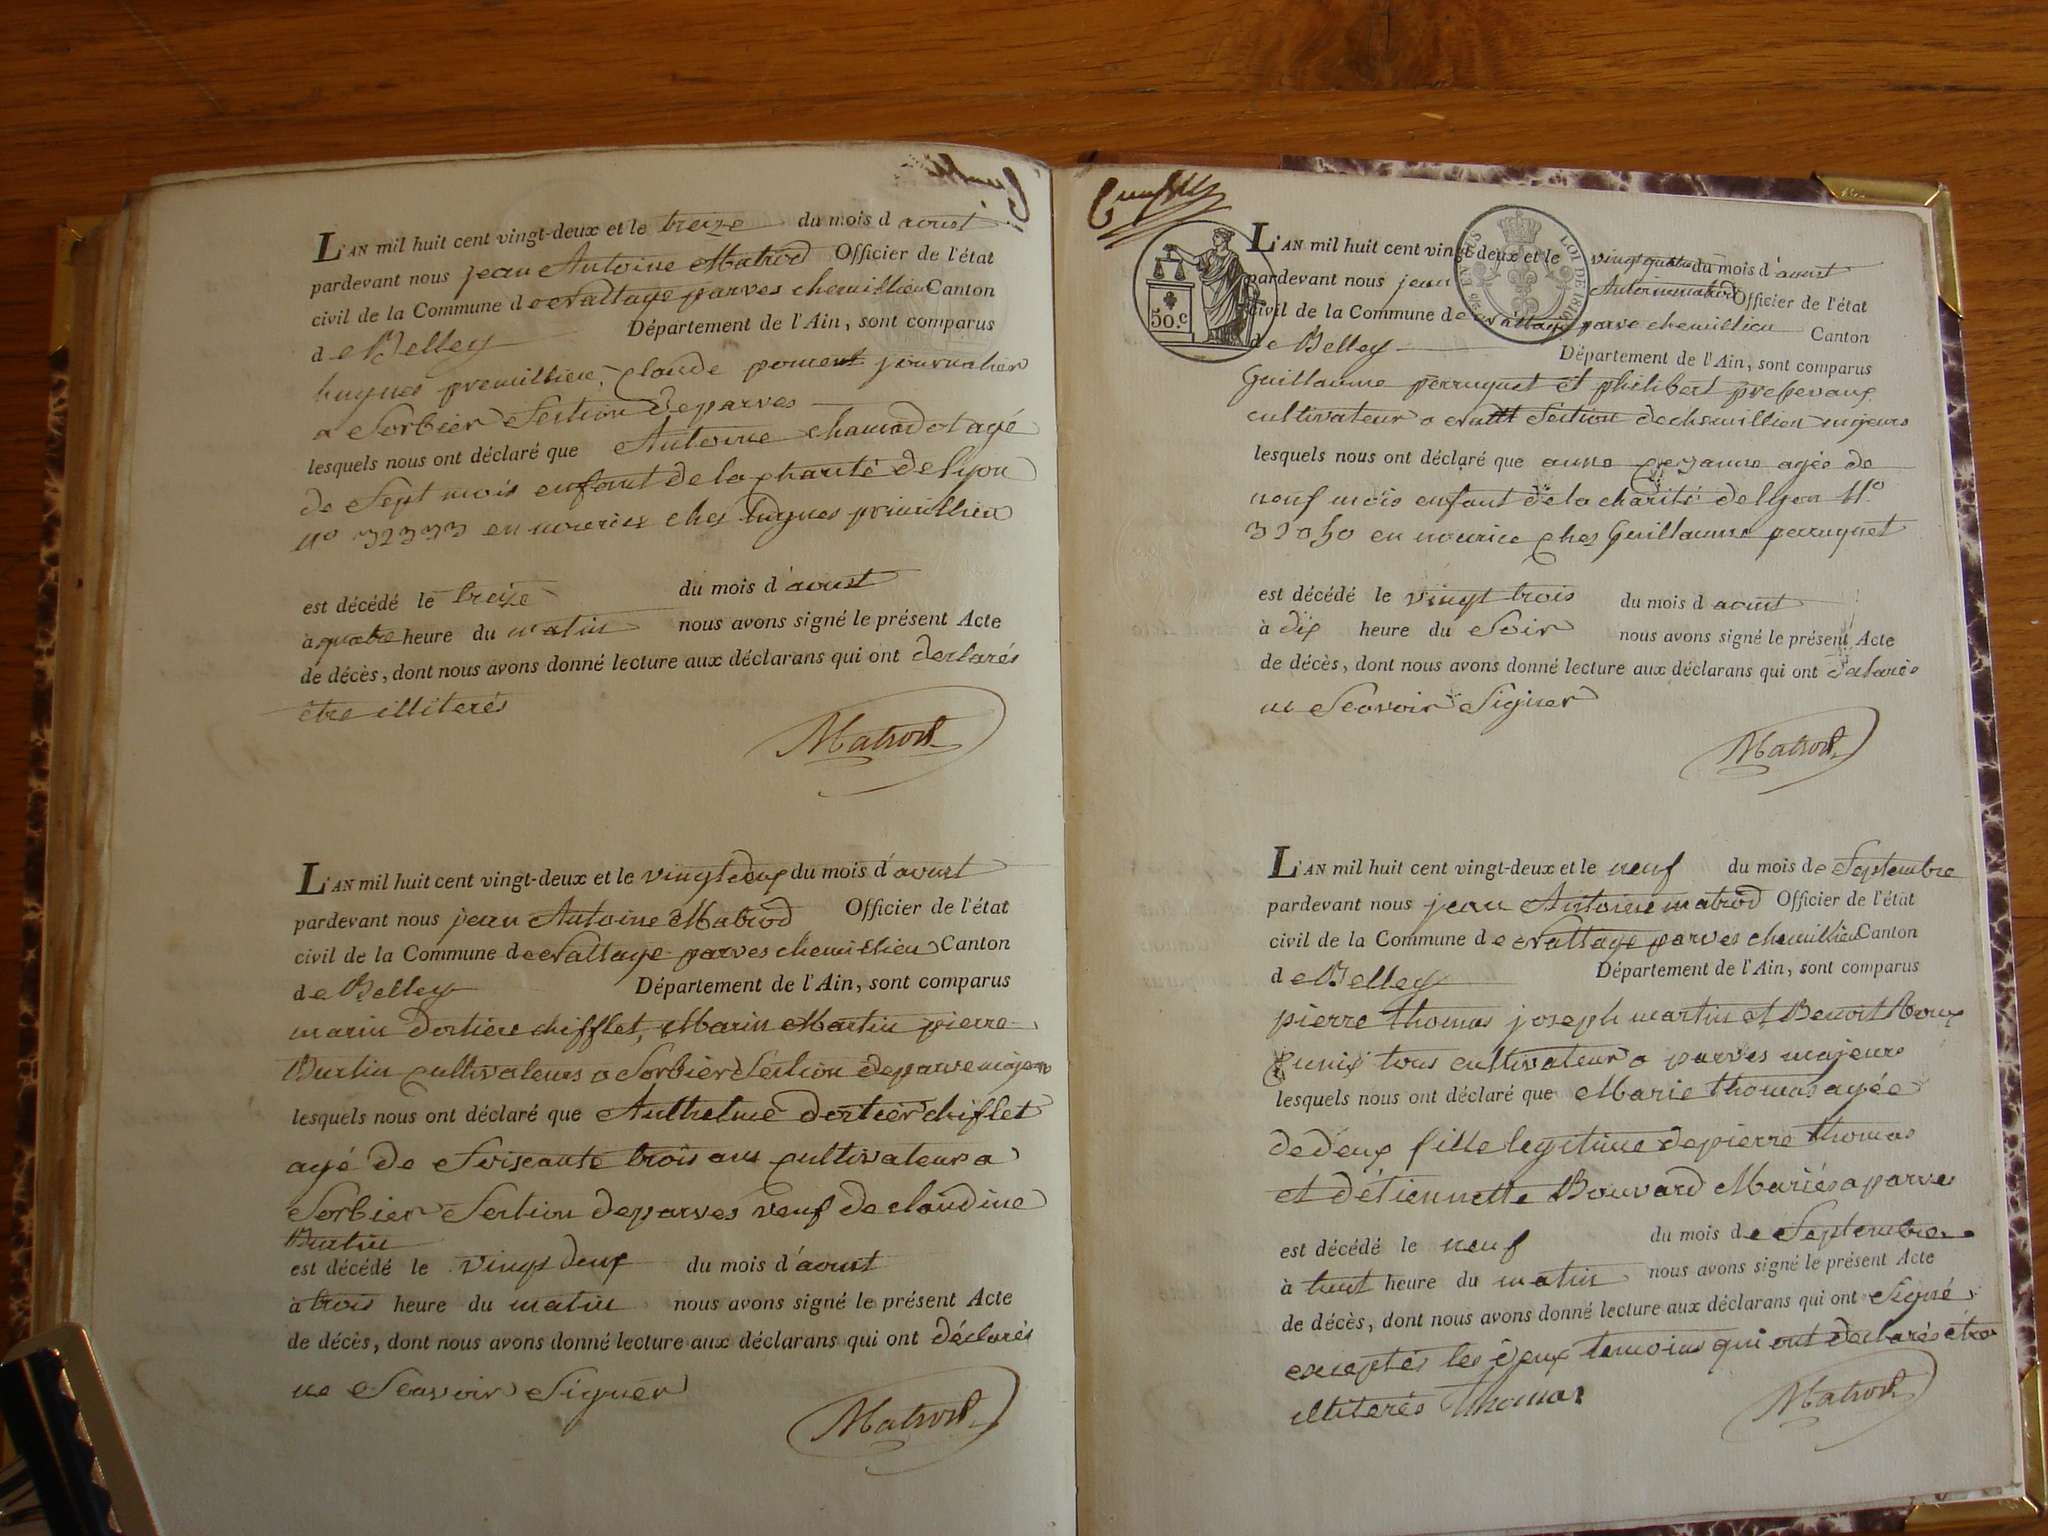 L'AN mil huit cent vingt-deux et le treize du mois d'aoust
pardevant nous jean Antoine Matrod Officier de l'état
civil de la Commune de parves chemillieu Canton
de Belley Département de l'Ain, sont comparus
hugues premillieu, Claude journalier
a Sorbier Section de parves
lesquels nous ont déclaré que Antoine agé
de Sept mois enfant de la charité de lyon
N° 32393 en chez hugues primillieu
est décédé le treize du mois d'aoust
à quatre heure du matin nous avons signé le présent Acte
de décès, dont nous avons donné lecture aux déclarans qui ont declarés
être illiterés
Matrod
L'AN mil huit cent vingt-deux et le vingt deux du mois d'avust
pardevant nous jean Antoine Matrod Officier de l'état
civil de la Commune de parves chemillieu Canton
de Belley Département de l'Ain, sont comparus
marin dortier chifflet, Marin Martin pierre
Burtin cultivateurs a Sorbier Section de parve
lesquels nous ont déclaré que Anthelme dortier chiflet
agé de Soiscante trois ans cultivateur a
Sorbier Section de parves veuf de claudine
Burtin
est décédé le vingt deux du mois d'aoust
à trois heure du matin nous avons signé le présent Acte
de décès, dont nous avons donné lecture aux déclarans qui ont déclarés
ne Scavoir Signer
Matrod
50.c
LOI DE
L'AN mil huit cent vingt-deux et le vingt quatre du mois d'aoust
pardevant nous jean Antoine matrod Officier de l'état
civil de la Commune de parve chemillieu Canton
de Belley Département de l'Ain, sont comparus
Guillaume perruquet et philibert
cultivateur a Section de chemillieu
lesquels nous ont déclaré que anne agée de
neuf mois enfant de la charité de lyon N°
en nourice chez Guillaume perruquet
est décédé le vingt trois du mois d'aoust
à dix heure du Soir nous avons signé le présent Acte
de décès, dont nous avons donné lecture aux déclarans qui ont
ne Scavoir Signer
Matrod
L'AN mil huit cent vingt-deux et le neuf du mois de Septembre
pardevant nous jean Antoine matrod Officier de l'état
civil de la Commune de parves chemillieu Canton
de Belley Département de l'Ain, sont comparus
pierre thomas joseph martin et Benoit Roux
tous cultivateur a parves majeurs
lesquels nous ont déclaré que Marie thomas agée
de deux fille legitime de pierre thomas
et d'étiennette Bouvard Mariés a parves
est décédé le neuf du mois de Septembre
à heure du matin nous avons signé le présent Acte
de décès, dont nous avons donné lecture aux déclarans qui ont Signé
exceptés les deux temoins qui ont declarés être
illiterés Thomas
Matrod